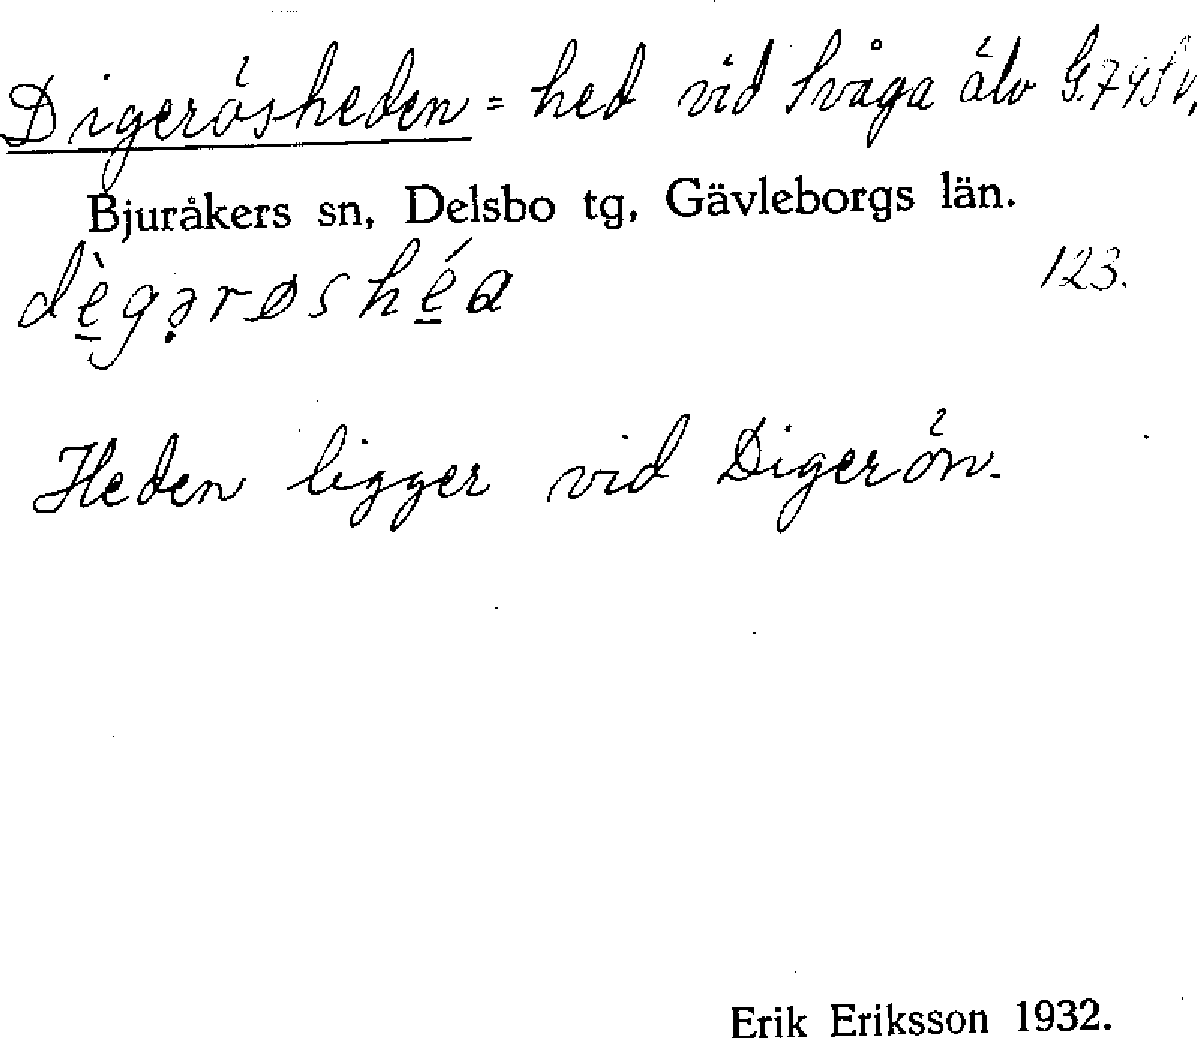 Digerösheden = hed vid Svåga älv
Bjuråkers sn, Delsbo tg, Gävleborgs län.
dègərøshéa 123.
Heden ligger vid Digerön.
Erik Eriksson 1932.